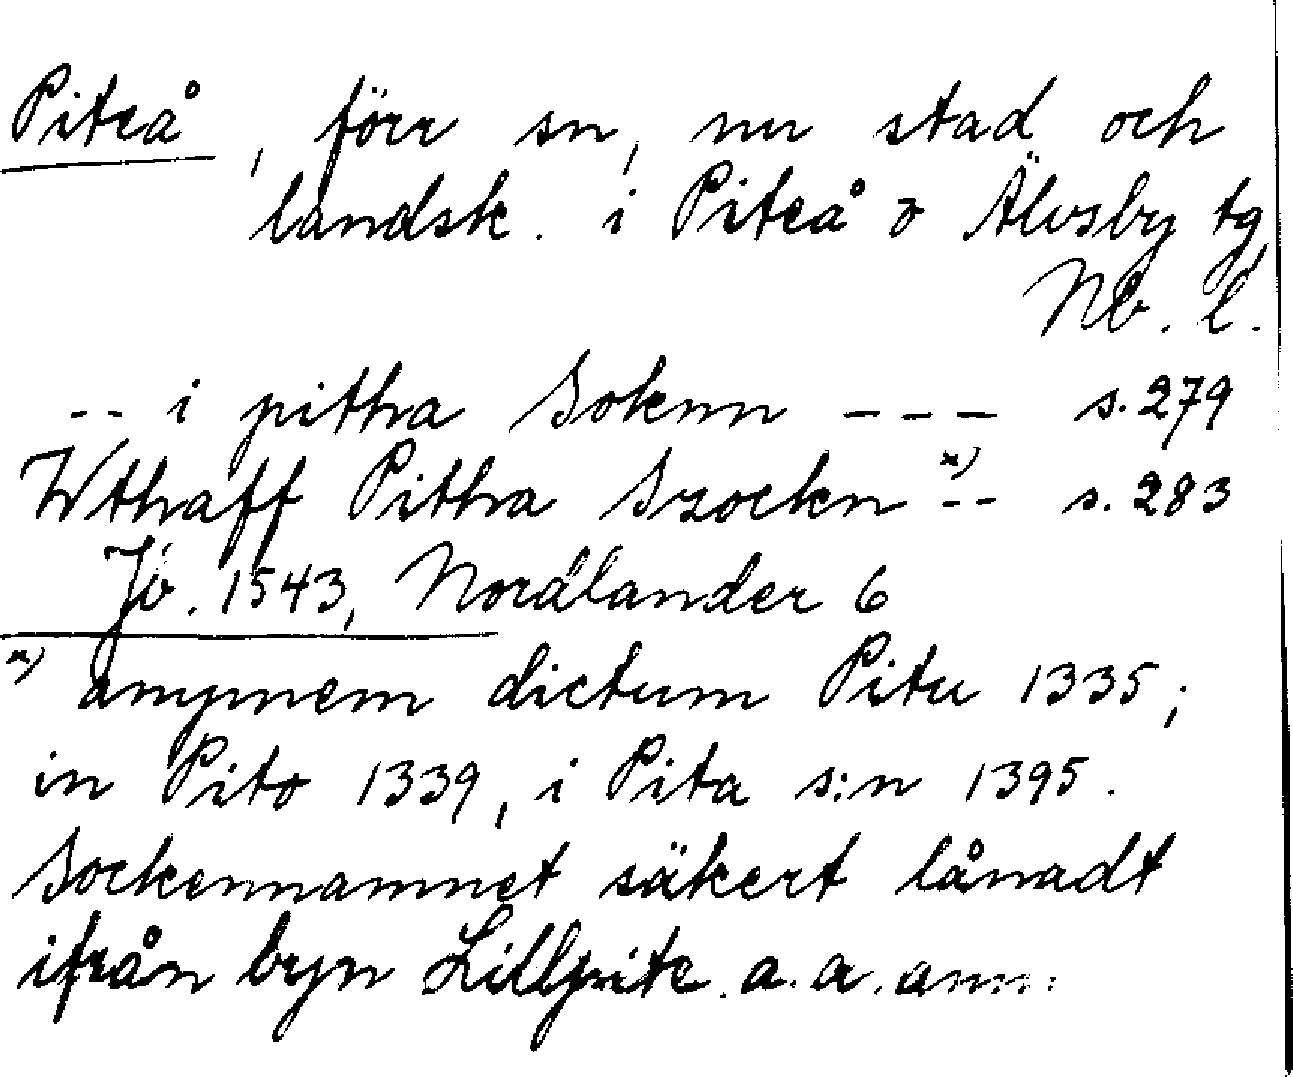 Piteå, förr sn, nu stad och
landsk. i Piteå o Älvsby tg,
Nb. l.
-- i pitha Soknn --- s. 279
Wthaff Pitha Szockn x) -- s. 283
Jb. 1543, Nordlander 6
x) ampnem dictum Pitu 1335;
in Pito 1339, i Pita s:n 1395.
Sockennamnet säkert lånadt
ifrån byn Lillpite. a. a. anm.